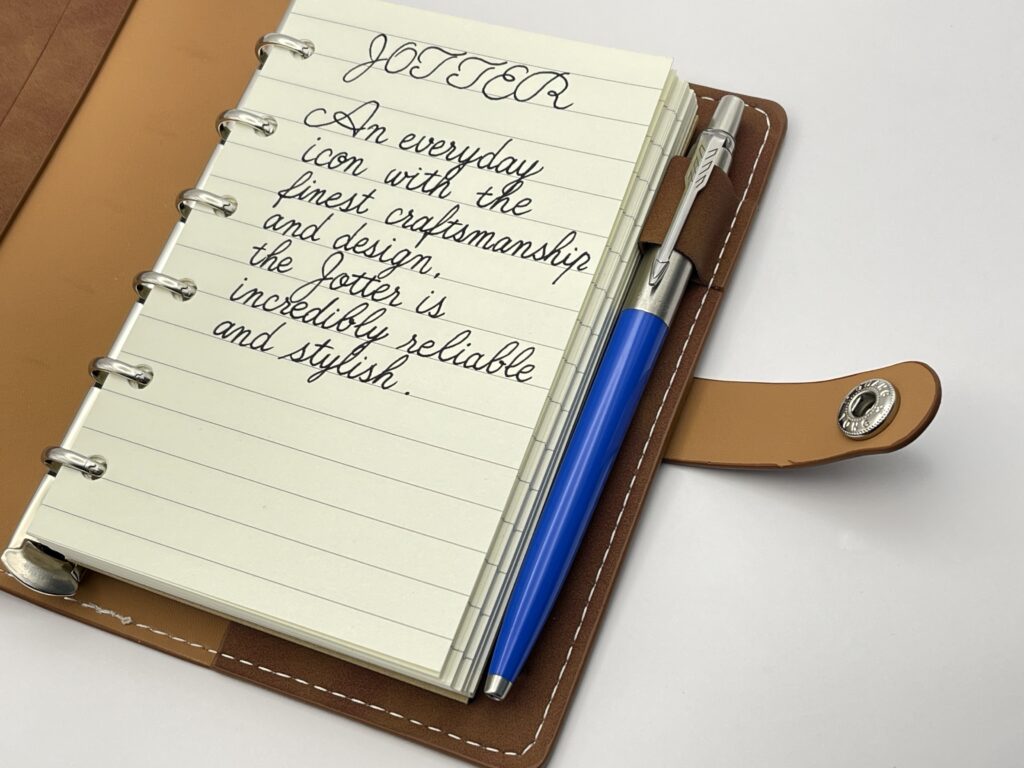 JOTTER
An everyday
icon with the
finest craftsmanship
and design.
the Jotter is
incredibly reliable
and stylish.